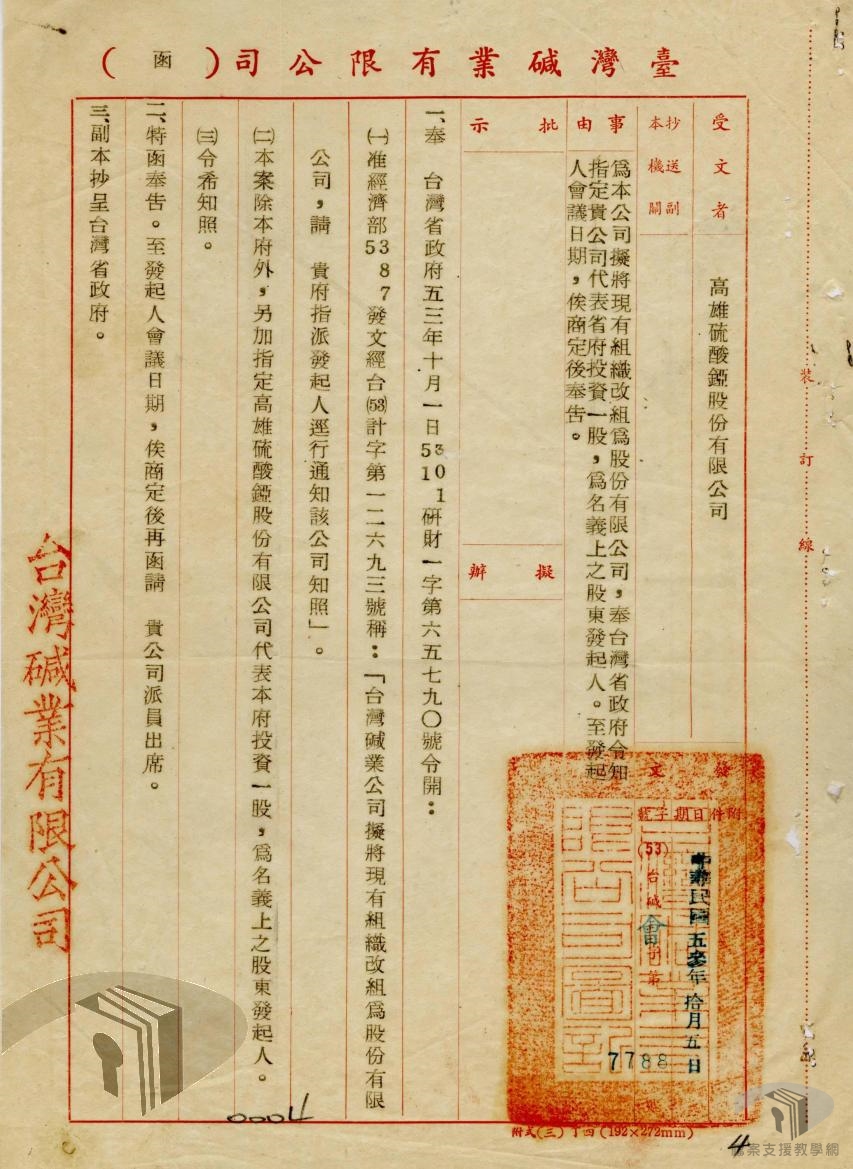 臺灣碱業有限公司(函)
受文者
高雄硫酸錏股份有限公司
抄送副
本機關
事由
為本公司擬將現有組織改組為股份有限公司,奉台灣省政府令知
指定貴公司代表省府投資一股,為名義上之股東發起人。至發起
人會議日期,俟商定後奉告。
批示
擬辦
發文
附件日期字號
中華民國五叁年拾月五日
(53)台碱會字第
7788
一、奉 台灣省政府五三年十月一日53101研財一字第六五七九〇號令開:
㈠准經濟部53 8 7發文經台(53)計字第一二六九三號稱:「台灣碱業公司擬將現有組織改組為股份有限
公司,請 貴府指派發起人逕行通知該公司知照」。
㈡本案除本府外,另加指定高雄硫酸錏股份有限公司代表本府投資一股,為名義上之股東發起人。
㈢令希知照。
二、特函奉告。至發起人會議日期,俟商定後再函請 貴公司派員出席。
三、副本抄呈台灣省政府。
台灣碱業有限公司
裝訂線
附式(三)丁四(192×272mm)
0004
4
檔案支援教學網